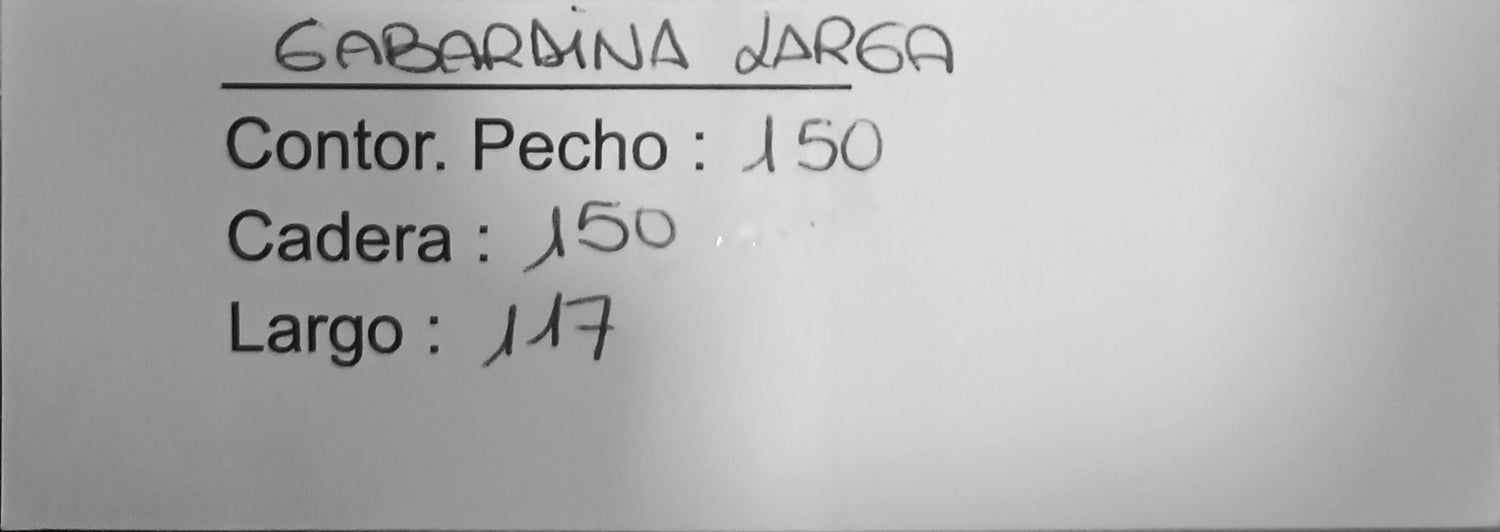 GABARDINA LARGA
Contor. Pecho : 150
Cadera : 150
Largo : 117